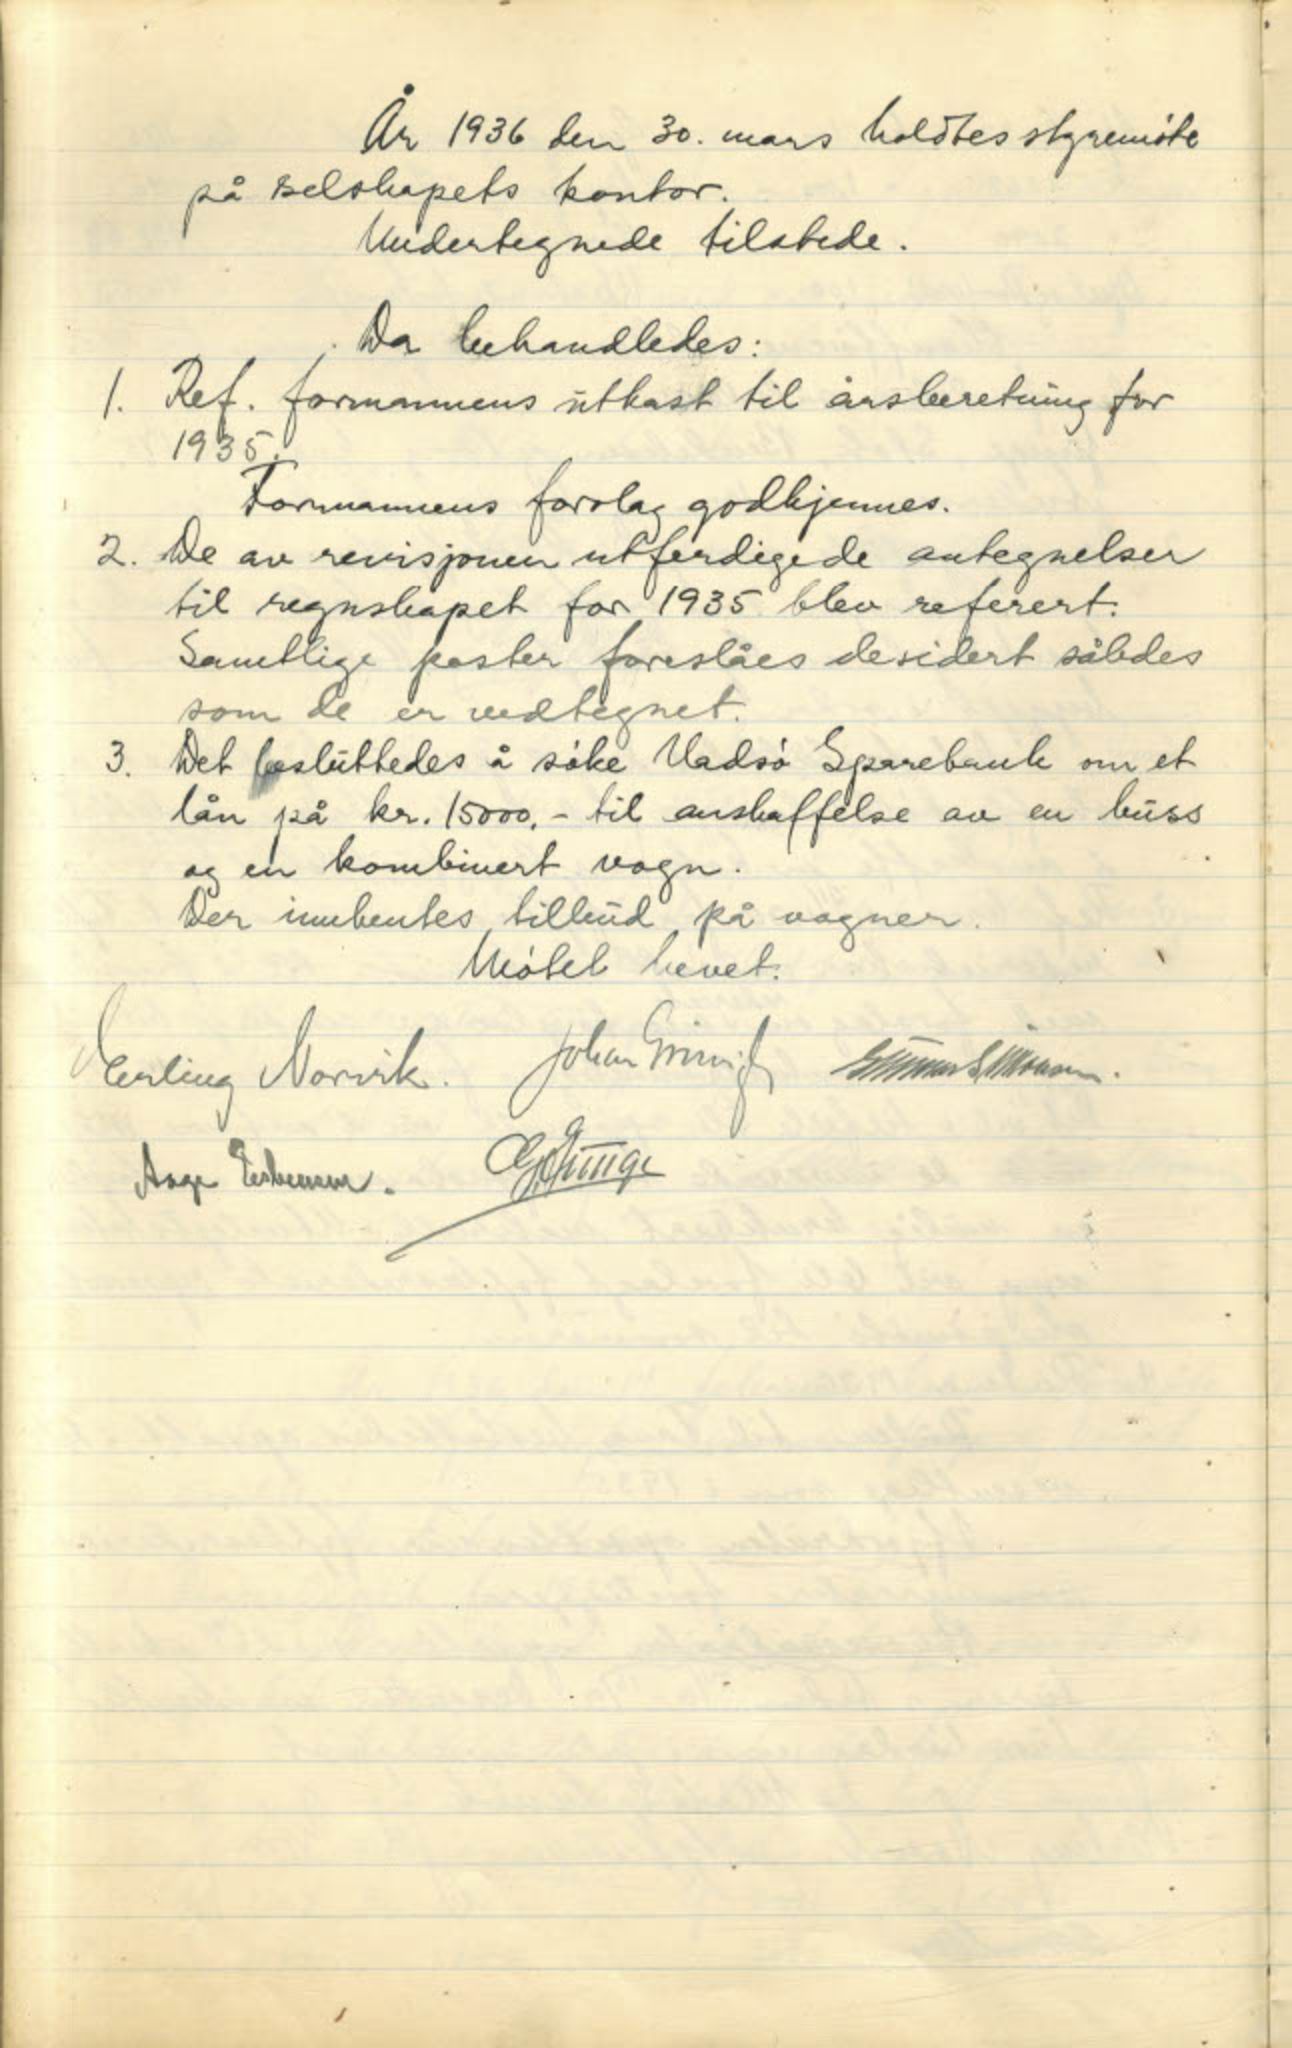 År 1936 den 30. mars holdtes styremöte
på selskapets kontor.
Undertegnede tilstede.
Da behandledes:
1. Ref. formannens utkast til årsberetning for
1935.
Formannens forslag godkjennes.
2. De av revisjonen utferdigede antegnelser
til regnskapet for 1935 blev referert.
Samtlige poster foreslåes desidert således
som de er vedtegnet.
3. Det besluttedes å söke Vadsö Sparebank om et
lån på kr. 15000.- til anskaffelse av en buss
og en kombinert vogn.
Der innhentes tilbud på vogner.
Mötet hevet.
Erling Norvik. Johan
Aage Esbensen.